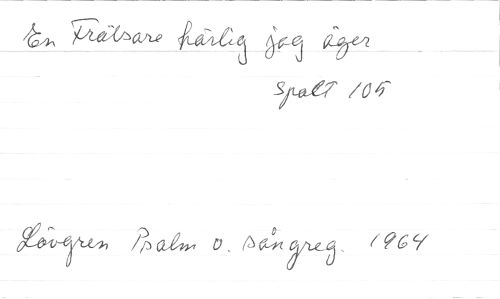 En Frälsare härlig jag äger
Spalt 105
Lövgren Psalm o. sångreg. 1964